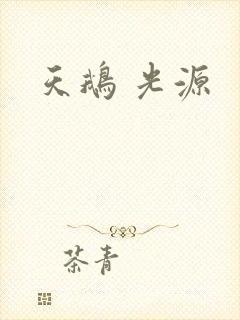 天鹅光源
茶青